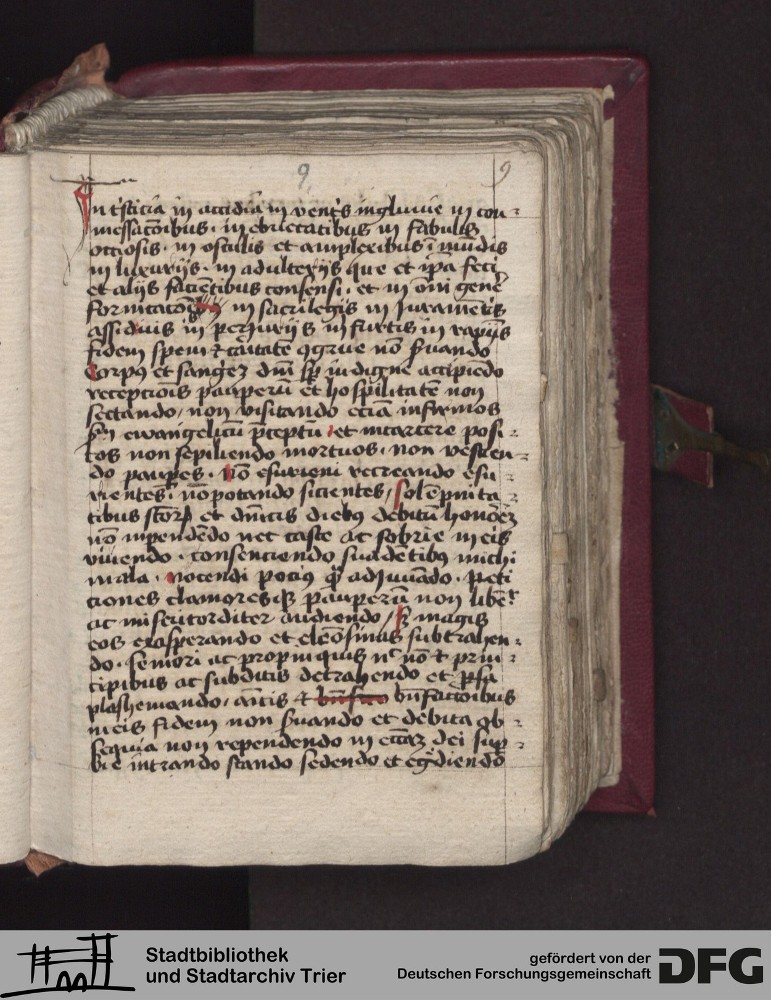 9 9
In tristicia in accidia in ventris ingluuie in com-
messacōibus · in ebrietatibus in fabulis
occiosis · in osculis et amplexibus īmūdis
in luxurijs · in adulterijs que et ip̄a feci
et alijs faciētibus consensi · et in oīni gene
fornicacōibus in sacrilegijs in Juramētis
assiduis in perjurijs in furtis in rapinis
fidem spem et caritatē nō seruando
Corpus et sanguinē dn̄i indigne accipiendo
receptiōis pauperū et hospitalitatē non
sectando / non visitando eciā infirmos
scdm ewangelicū p̄ceptū / et in carcere posi-
tos non sepiliendo mortuos · non vestien-
do paupes · nō esurienti recreando esu-
rientes · nō potando sicientes / solēpnita-
tibus sctōrum et dn̄icis diebꝯ debitū honorē
nō inpendēdo nec caste ac sobrie in eis
viuendo · consenciendo suadētibꝯ michi
mala · nocendi pocius qm̄ adjuuādo · peti
ciones clamoresqꝫ pauperū non libēr
ac misericorditer audiendo / sꝫ magis
eos exasperando et eleōsinas subtrahen-
do · seniori ac propinquis nō et prin-
cipibus ac subditis detrahendo et
plasphemando / amicis et bn̄factoribus
meis fidem non seruando et debita ob-
sequia non rependendo in ecciaꝫ dei sup-
be intrando stando sedendo et egrediendo
Stadtbibliothek
und Stadtarchiv Trier
gefördert von der
Deutschen Forschungsgemeinschaft
DFG